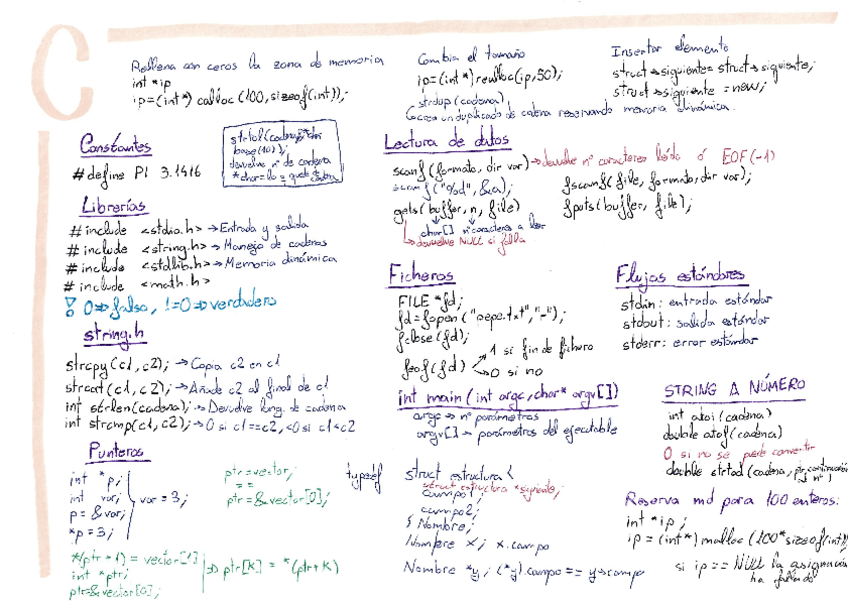 C
Rellena con ceros la zona de memoria
int *ip
ip=(int*) calloc(100,sizeof(int));
Cambia el tamaño
ip=(int*) realloc(ip,50);
strdup(cadena)
crea un duplicado de cadena reservando memoria dinámica.
Insertar elemento
struct→siguiente=struct→siguiente;
struct→siguiente=new;
Constantes
#define PI 3.1416
base(10));
devuelve nº de cadena
Librerías
#include <stdio.h>→Entrada y salida
#include <string.h>→Manejo de cadenas
#include <stdlib.h>→Memoria dinámica
#include <math.h>
! 0⇒falso, !=0⇒verdadero
string.h
strcpy(c1,c2);→Copia c2 en c1
strcat(c1,c2);→Añade c2 al final de c1
int strlen(cadena);→Devuelve long. de cadena
int strcmp(c1,c2);→0 si c1==c2,<0 si c1<c2
Punteros
int *p;
int var;
p=&var;
*p=3;
var=3;
ptr=vector;
==
ptr=&vector[0];
*(ptr+1)=vector[1]
int *ptr;
ptr=&vector[0];
⇒ptr[K]=*(ptr+K)
Lectura de datos
scanf(formato,dir var)→devuelve nº caracteres leído ó EOF(-1)
scanf("%d",&a);
gets(buffer,n,file)
char[] nº caracteres a leer
devuelve NULL si falla
fscanf(file,formato,dir var);
fputs(buffer,file);
Ficheros
FILE *fd;
fd=fopen("pepe.txt","-");
fclose(fd);
feof(fd)
1 si fin de fichero
0 si no
Flujos estándares
stdin: entrada estándar
stdout: salida estándar
stderr: error estándar
int main(int argc,char* argv[])
argc⇒nº parámetros
argv[]→parámetros del ejecutable
typedef
struct estructura{
struct estructura *siguiente;
campo1;
campo2;
}Nombre;
Nombre x; x.campo
Nombre *y; (*y).campo == y→campo
STRING A NÚMERO
int atoi(cadena)
double atof(cadena)
0 si no se puede convertir
double strtod(cadena,ptr continuación
Reserva md para 100 enteros:
int *ip;
ip=(int*) malloc(100*sizeof(int))
si ip==NULL la asignación
ha fallado